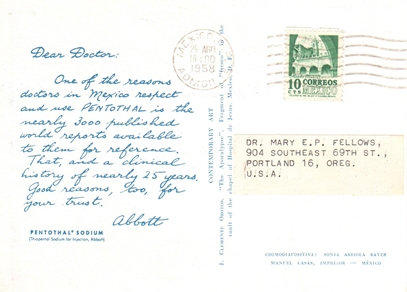 Dear Doctor:
One of the reasons
doctors in Mexico respect
and use PENTOTHAL is the
nearly 3000 published
world reports available
to them for reference.
That, and a clinical
history of nearly 25 years.
Good reasons, too, for
your trust.
Abbott
PENTOTHAL® SODIUM
(Thiopental Sodium for Injection, Abbott)
CONTEMPORARY ART
J. Clemente Orozco, "The Apocalypse". Fragment of
vault of the chapel of Hospital de Jesus, Mexico, D. F.
1958
CORREOS
DR. MARY E.P. FELLOWS,
904 SOUTHEAST 69TH ST.,
PORTLAND 16, OREG.
U.S.A.
CROMODIAPOSITIVA: SONIA ARRIOLA BAYER
MANUEL CASAS, IMPRESOR — MÉXICO